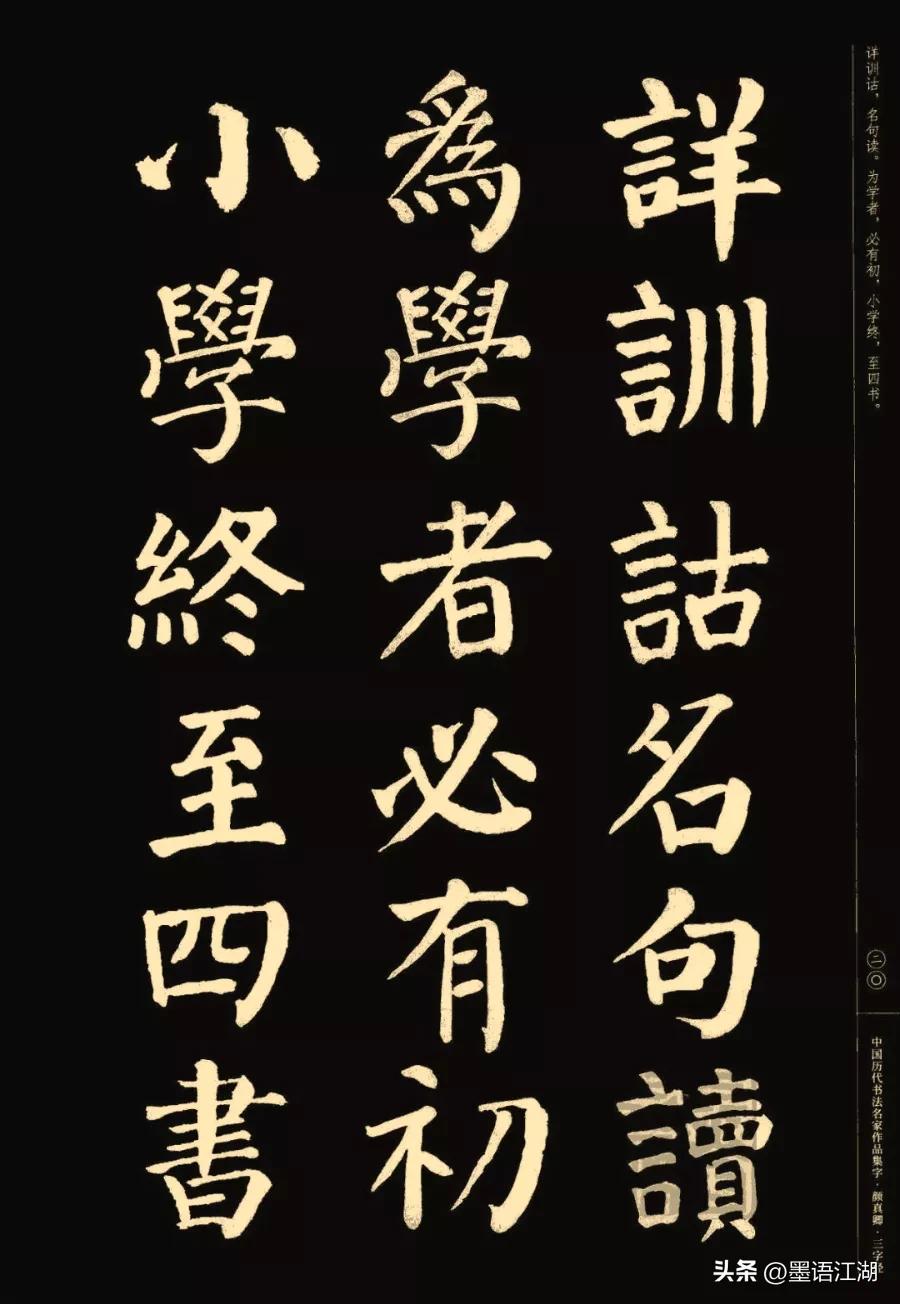 詳訓詁名句讀
為學者必有初
小學終至四書
详训诂，名句读。为学者，必有初，小学终，至四书。
二〇
中国历代书法名家作品集字·颜真卿·三字经
头条 @墨语江湖